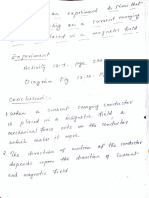 an experiment to show that
acting on a current carrying
placed in a magnetic field
Experiment
Activity 12.7, page
Diagram Fig 12.
Conclusion:-
1. When a current carrying conductor
is placed in a magnetic field a
mechanical force acts on the conductor
which makes it move.
2. The direction of motion of the conductor
depends upon the direction of current
and magnetic field